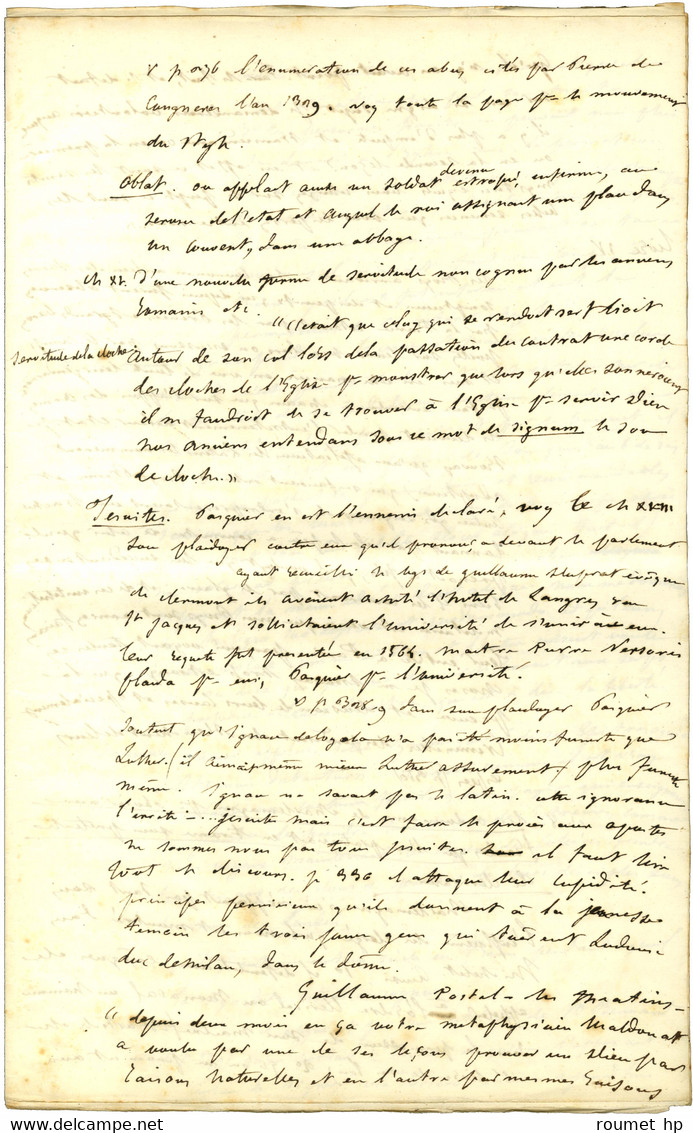 v p 276 l'enumeration de ces abus cités par Pierre de
Cugneres l'an 1329. voy toute la page pr le mouvement
du style.
Oblat. on applait ainsi un soldat devenu estropié, infirme, au
service de l'etat et auquel le roi assignait une place dans
un couvent, dans une abbaye.
ch XV. D'une nouvelle forme de servitude non cognue par les anciens
Romains etc. "C'était que celuy qui se rendoit serf lioit
Servitude de la cloche. autour de son col lors de la passation du contrat une corde
des cloches de l'Eglise pr monstrer que lors qu'elles sonneroient
il m faudroit de se trouver à l'Eglise pr servir Dieu
nos anciens entendans sous ce mot de signum le son
de cloche."
Jesuites. Pasquier en est l'ennemi declaré, voy le ch
son plaidoyer contre eux qu'il prononça devant le parlement
ayant recueilli le legs de guillaume Duprat évêque
de clermont ils avaient acheté l'hotel de Langres rue
St Jacques et sollicitaient l'université de s'unir à eux.
leur requete fut presentée en 1564. maitre Pierre Versoris
plaida pr eux, Pasquier pr l'université.
v p dans son plaidoyer Pasquier
soutient qu'Ignace de Loyola n'a pas été moins funeste que
Luther. (il aimait même mieux Luther assurement) plus funeste
même. Ignace ne savait pas le latin. cette ignorance
l'irrite – ... jesuite mais c'est faire le procès aux apotres
ne sommes nous pas tous jesuites. il faut lire
tout le discours. p 336 il attaque leur cupidité.
principes pernicieux qu'ils donnent à la jeunesse
temoin les trois jeunes gens qui tuèrent Ludovic
duc de Milan, dans le dôme.
Guillaume Postel – les
"depuis deux mois en ça votre metaphysicien Maldonat
a voulu par une de ses leçons prouver un Dieu par
raisons naturelles et en l'autre par mesmes raisons
roumet hp